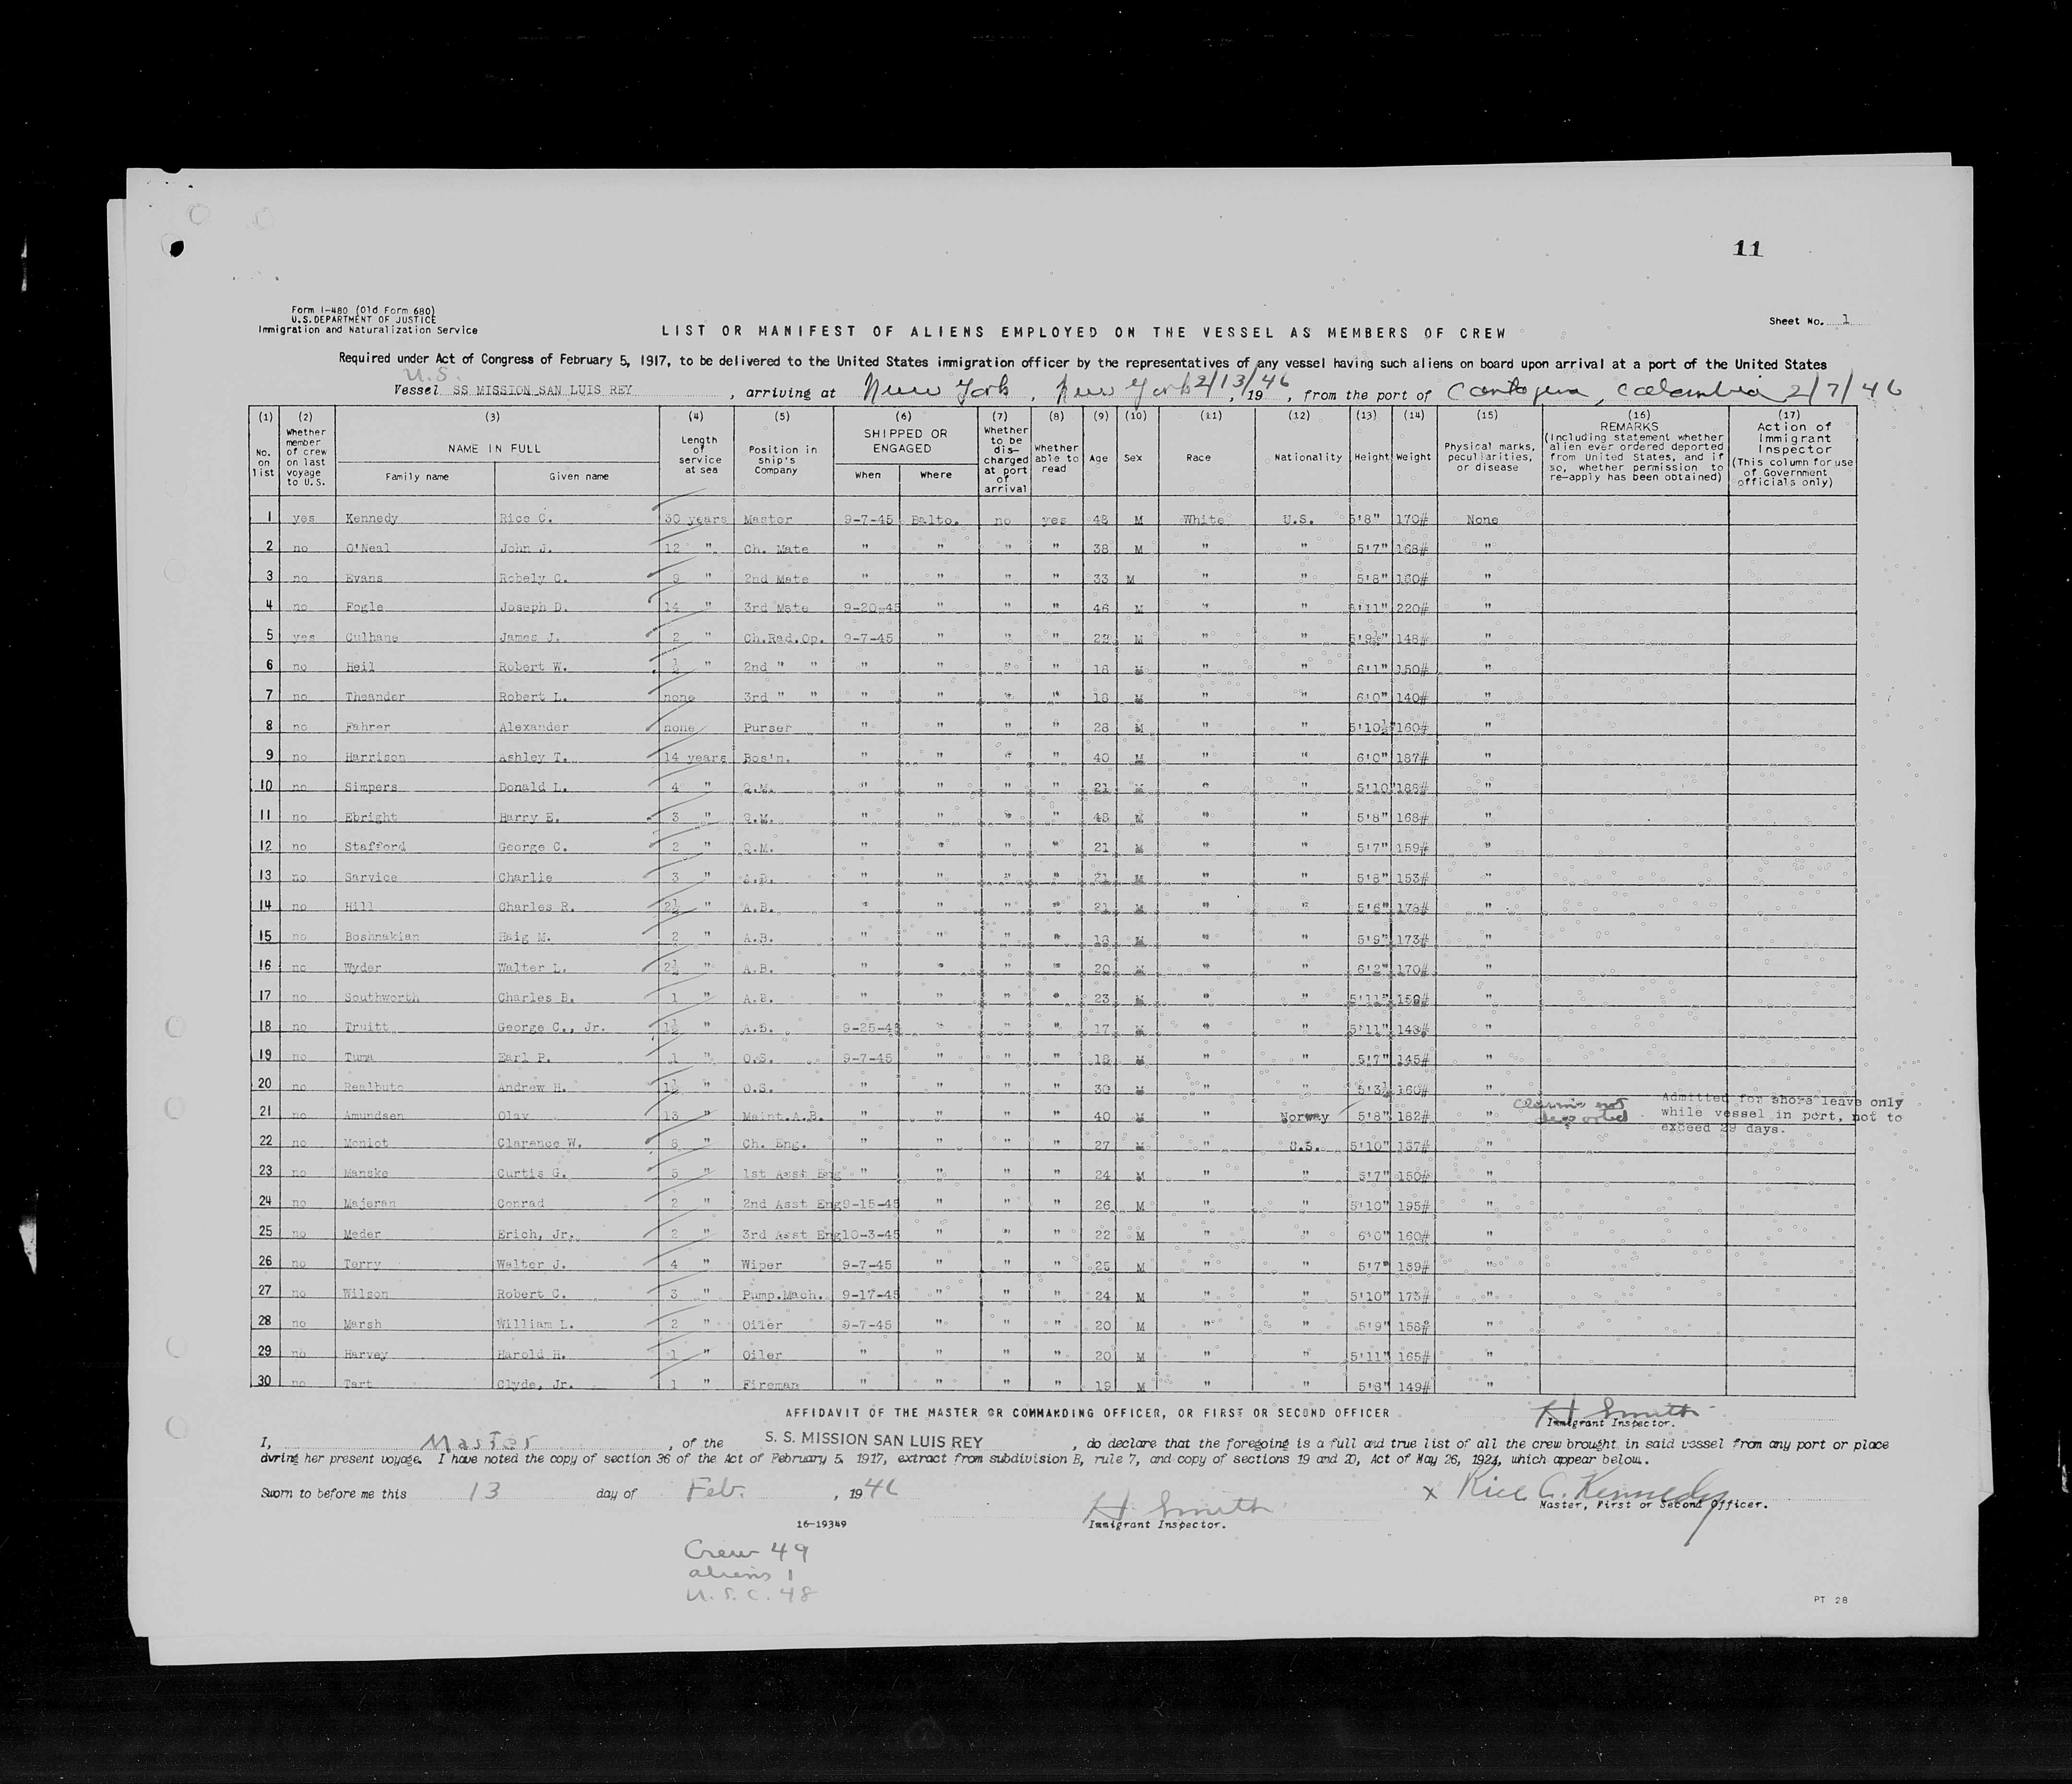 11
Form I-480 (Old Form 680)
U.S. DEPARTMENT OF JUSTICE
Immigration and Naturalization Service
LIST OR MANIFEST OF ALIENS EMPLOYED ON THE VESSEL AS MEMBERS OF CREW
Sheet No. 1
Required under Act of Congress of February 5, 1917, to be delivered to the United States immigration officer by the representatives of any vessel having such aliens on board upon arrival at a port of the United States
U.S.
Vessel SS MISSION SAN LUIS REY, arriving at New York, New York 2/13/46, 19, from the port of Cartagena, Colombia 2/7/46
(1) (2) (3) (4) (5) (6) (7) (8) (9) (10) (11) (12) (13) (14) (15) (16) (17)
No. on list
Whether member of crew on last voyage to U.S.
NAME IN FULL
Family name Given name
Length of service at sea
Position in ship's Company
SHIPPED OR ENGAGED
When Where
Whether to be discharged at port of arrival
Whether able to read
Age Sex Race Nationality Height Weight
Physical marks, peculiarities, or disease
REMARKS (Including statement whether alien ever ordered deported from United States, and if so, whether permission to re-apply has been obtained)
Action of Immigrant Inspector (This column for use of Government officials only)
1 yes Kennedy Rice C. 30 years Master 9-7-45 Balto. no yes 48 M White U.S. 5'8" 170# None
2 no O'Neal John J. 12 " Ch. Mate " " " " 38 M " " 5'7" 168# "
3 no Evans Robely C. 9 " 2nd Mate " " " " 33 M " " 5'8" 160# "
4 no Fogle Joseph D. 14 " 3rd Mate 9-20-45 " " " 46 M " " 5'11" 220# "
5 yes Culhane James J. 2 " Ch.Rad.Op. 9-7-45 " " " 22 M " " 5'9½" 148# "
6 no Heil Robert W. ½ " 2nd " " " " " " 18 M " " 6'1" 150# "
7 no Theander Robert L. none 3rd " " " " " " 18 M " " 6'0" 140# "
8 no Fahrer Alexander none Purser " " " " 28 M " " 5'10½" 160# "
9 no Harrison Ashley T. 14 years Bos'n. " " " " 40 M " " 6'0" 187# "
10 no Simpers Donald L. 4 " Q.M. " " " " 21 M " " 5'10" 188# "
11 no Ebright Harry E. 3 " Q.M. " " " " 48 M " " 5'8" 168# "
12 no Stafford George C. 2 " Q.M. " " " " 21 M " " 5'7" 159# "
13 no Sarvice Charlie 3 " A.B. " " " " 21 M " " 5'8" 153# "
14 no Hill Charles R. 2½ " A.B. " " " " 21 M " " 5'6" 178# "
15 no Boshnakian Haig M. 2 " A.B. " " " " 18 M " " 5'9" 173# "
16 no Wyder Walter L. 2½ " A.B. " " " " 20 M " " 6'2" 170# "
17 no Southworth Charles B. 1 " A.B. " " " " 23 M " " 5'11" 158# "
18 no Truitt George C., Jr. 1½ " A.B. 9-25-45 " " " 17 M " " 5'11" 148# "
19 no Tuma Earl P. 1 " O.S. 9-7-45 " " " 18 M " " 5'7" 145# "
20 no Realbuto Andrew H. 1½ " O.S. " " " " 30 M " " 5'3½ 160# "
21 no Amundsen Olav 13 " Maint.A.B. " " " " 40 M " Norway 5'8" 182# " Claims not deported Admitted for shore leave only while vessel in port, not to exceed 29 days.
22 no Moniot Clarence W. 8 " Ch. Eng. " " " " 27 M " U.S. 5'10" 137# "
23 no Manske Curtis G. 5 " 1st Asst Eng " " " " 24 M " " 5'7" 150# "
24 no Majeran Conrad 2 " 2nd Asst Eng 9-15-45 " " " 26 M " " 5'10" 195# "
25 no Meder Erich, Jr. 2 " 3rd Asst Eng 10-3-45 " " " 22 M " " 6'0" 160# "
26 no Terry Walter J. 4 " Wiper 9-7-45 " " " 25 M " " 5'7" 159# "
27 no Wilson Robert C. 3 " Pump.Mach. 9-17-45 " " " 24 M " " 5'10" 173# "
28 no Marsh William L. 2 " Oiler 9-7-45 " " " 20 M " " 5'9" 158# "
29 no Harvey Harold H. 1 " Oiler " " " " 20 M " " 5'11" 165# "
30 no Tart Clyde, Jr. 1 " Fireman " " " " 19 M " " 5'8" 149# "
AFFIDAVIT OF THE MASTER OR COMMANDING OFFICER, OR FIRST OR SECOND OFFICER
H Smith
Immigrant Inspector.
I, Master, of the S. S. MISSION SAN LUIS REY, do declare that the foregoing is a full and true list of all the crew brought in said vessel from any port or place
during her present voyage. I have noted the copy of section 36 of the Act of February 5, 1917, extract from subdivision B, rule 7, and copy of sections 19 and 20, Act of May 26, 1924, which appear below.
Sworn to before me this 13 day of Feb., 1946
H. Smith
Immigrant Inspector.
x Rice C. Kennedy
Master, First or Second Officer.
16-19349
Crew 49
aliens 1
U.S.C. 48
PT 28